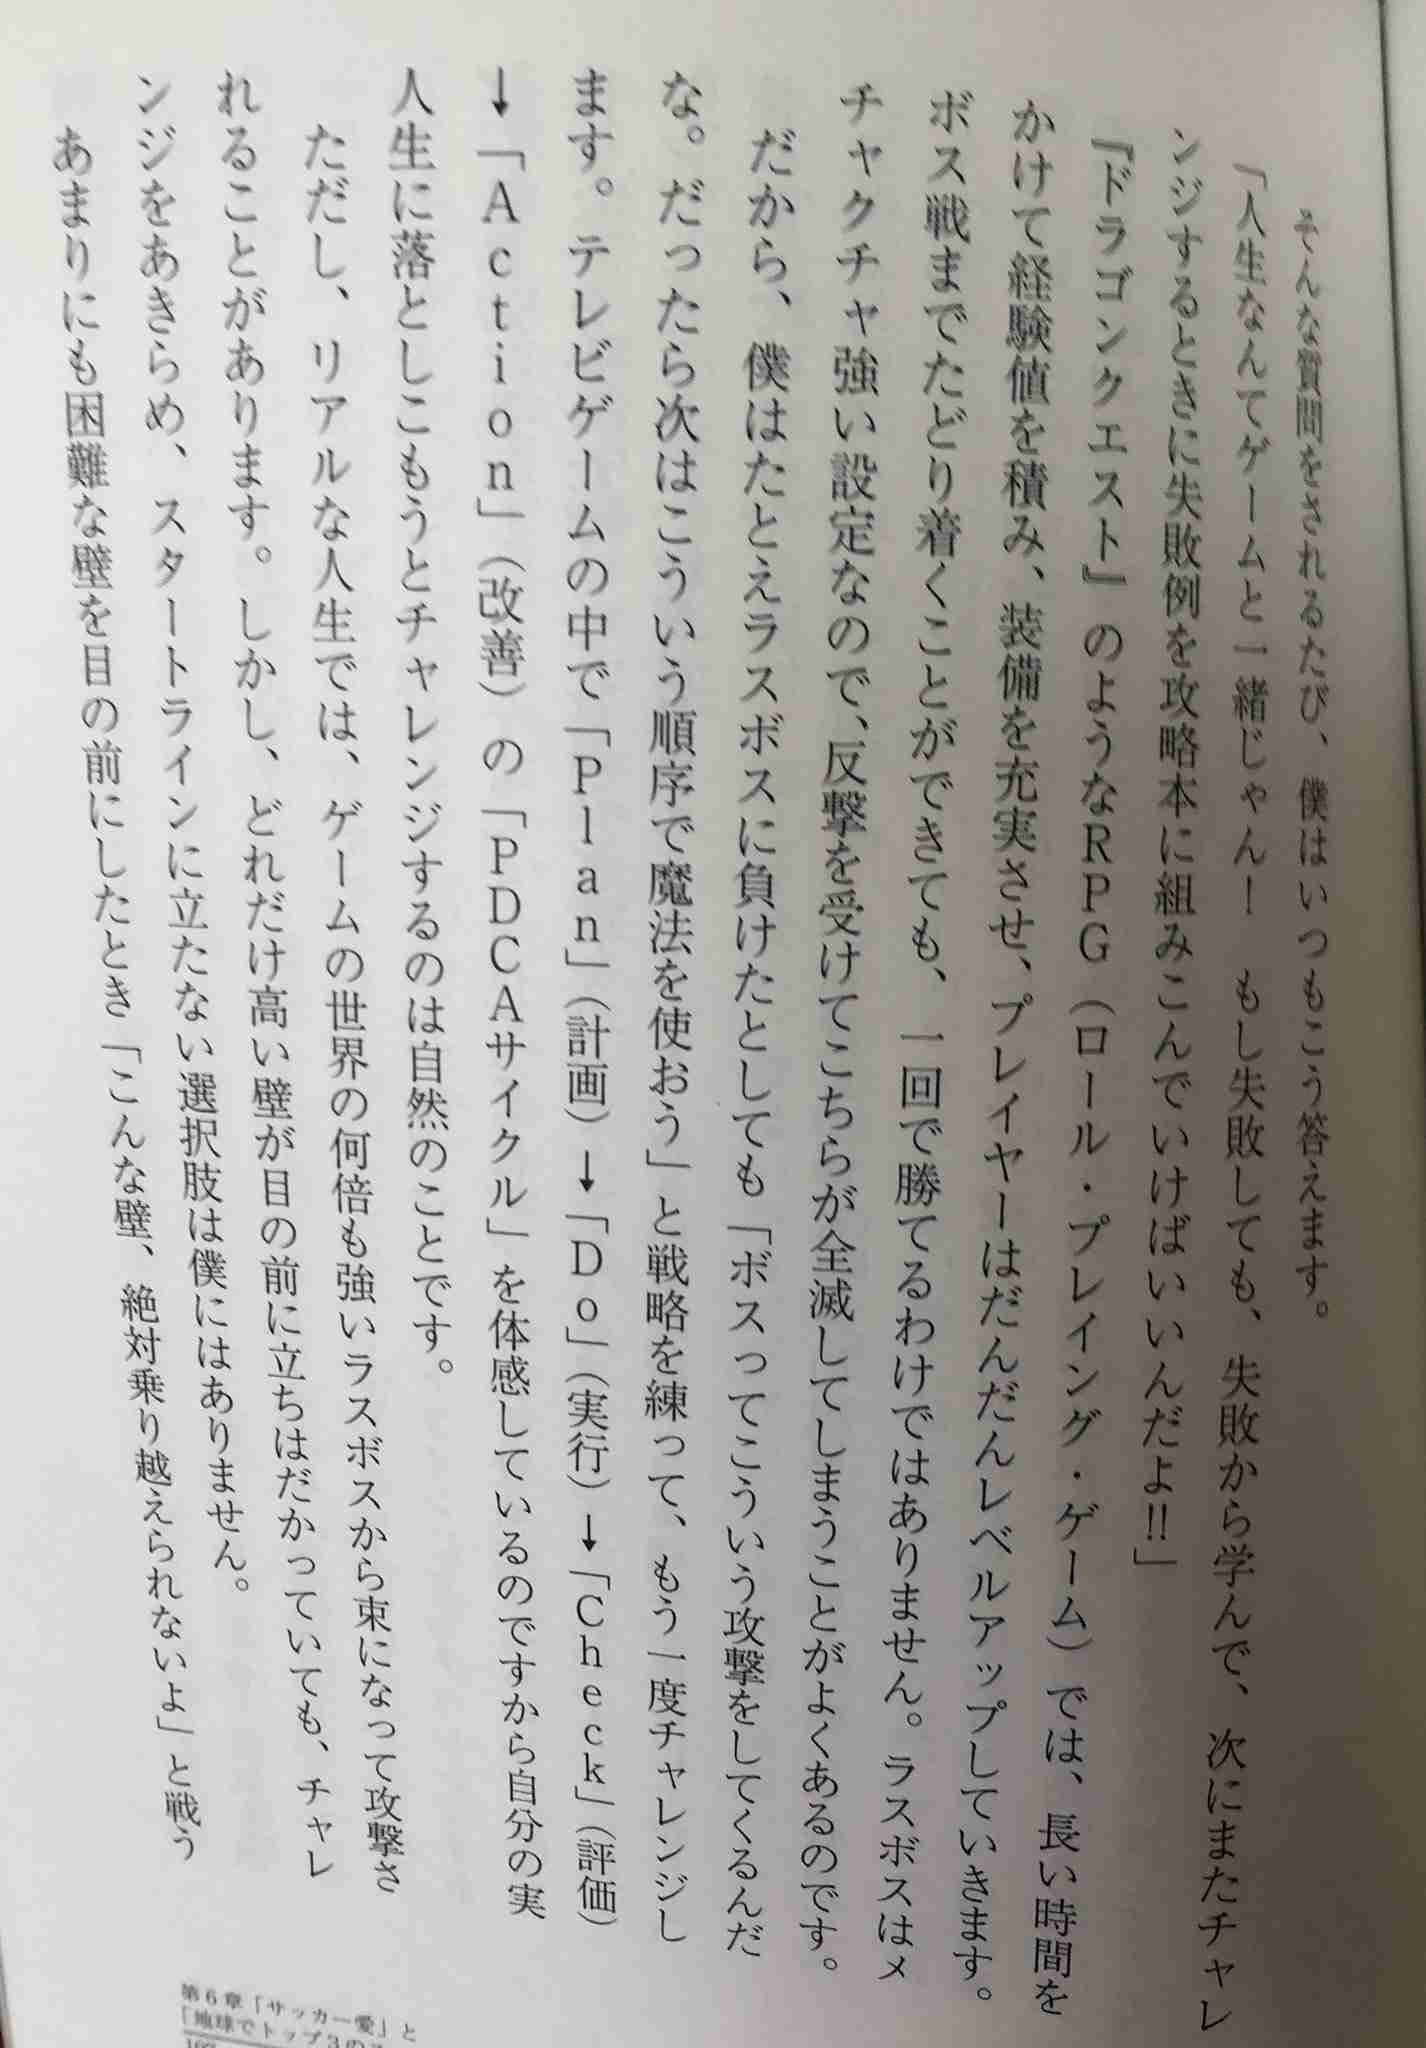 そんな質問をされるたび、僕はいつもこう答えます。
「人生なんてゲームと一緒じゃん！　もし失敗しても、失敗から学んで、次にまたチャレ
ンジするときに失敗例を攻略本に組みこんでいけばいいんだよ!!」
『ドラゴンクエスト』のようなRPG（ロール・プレイング・ゲーム）では、長い時間を
かけて経験値を積み、装備を充実させ、プレイヤーはだんだんレベルアップしていきます。
ボス戦までたどり着くことができても、一回で勝てるわけではありません。ラスボスはメ
チャクチャ強い設定なので、反撃を受けてこちらが全滅してしまうことがよくあるのです。
だから、僕はたとえラスボスに負けたとしても「ボスってこういう攻撃をしてくるんだ
な。だったら次はこういう順序で魔法を使おう」と戦略を練って、もう一度チャレンジし
ます。テレビゲームの中で「Plan」（計画）→「Do」（実行）→「Check」（評価）
→「Action」（改善）の「PDCAサイクル」を体感しているのですから自分の実
人生に落としこもうとチャレンジするのは自然のことです。
ただし、リアルな人生では、ゲームの世界の何倍も強いラスボスから束になって攻撃さ
れることがあります。しかし、どれだけ高い壁が目の前に立ちはだかっていても、チャレ
ンジをあきらめ、スタートラインに立たない選択肢は僕にはありません。
あまりにも困難な壁を目の前にしたとき「こんな壁、絶対乗り越えられないよ」と戦う
第6章「サッカー愛」と
「地球でトップ3の